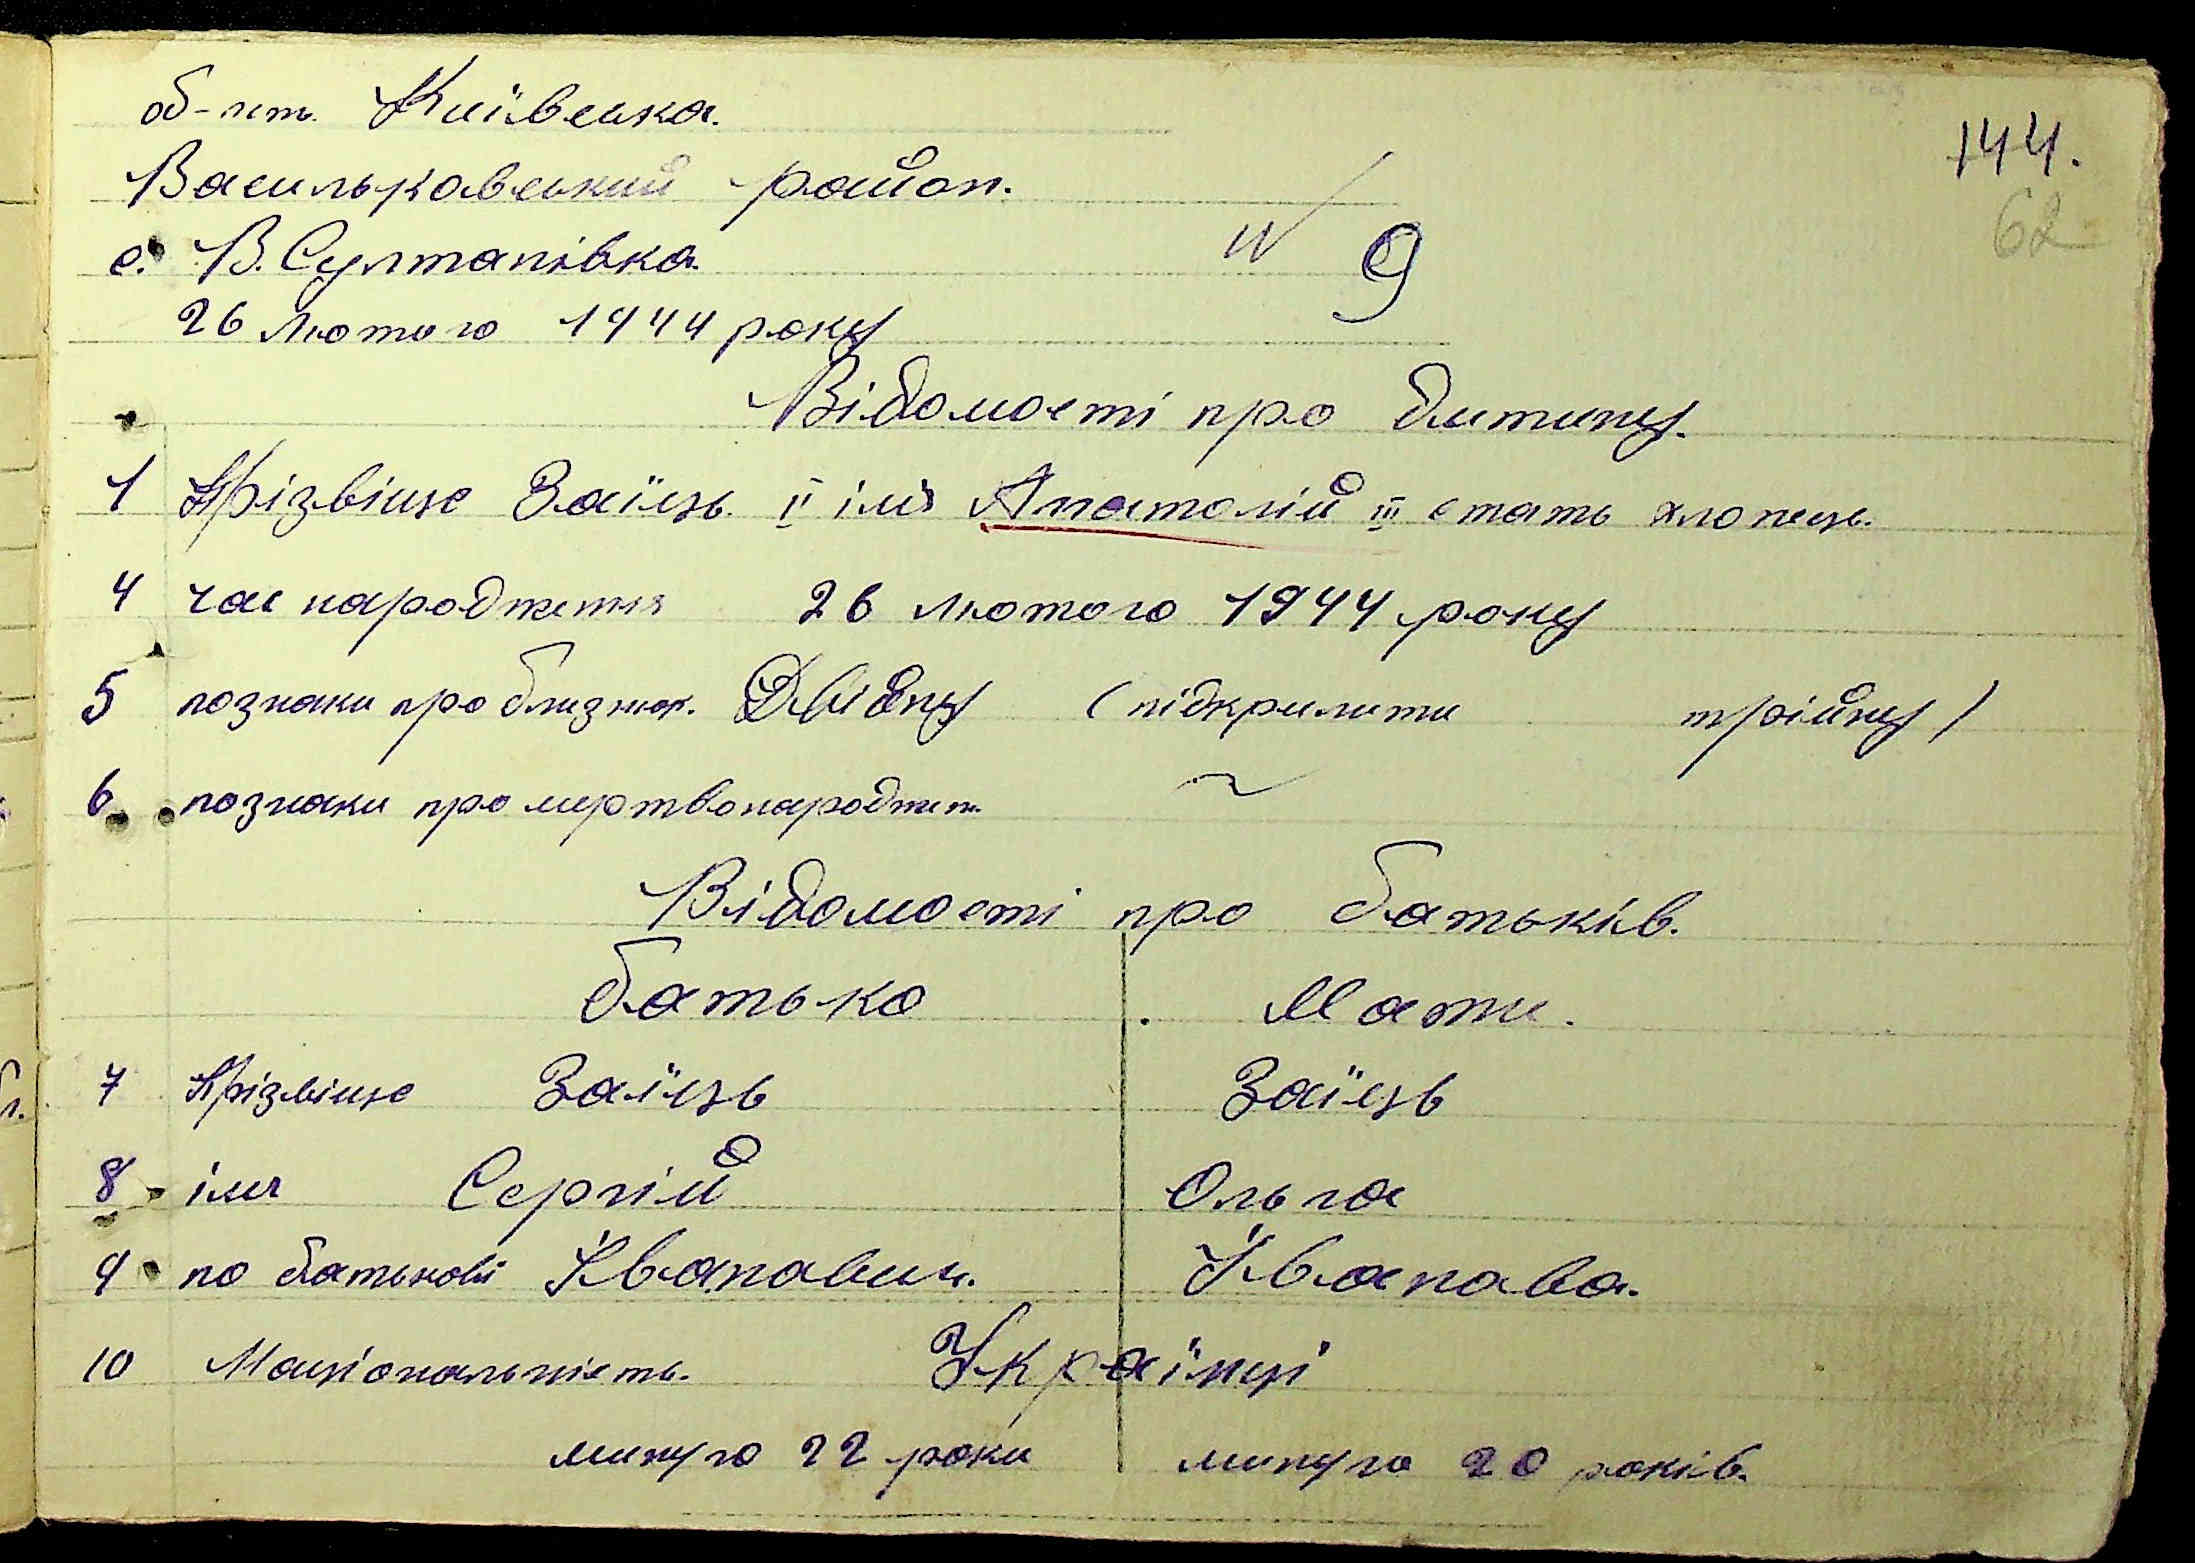 об-лсть. Київська.
Васильковський район.
144.
62
с. В. Султанівка.
№ 9
26 Лютого 1944 року
Відомості про дитину.
1 Прізвіще Заїць. II імя Анатолій III стать хлопець.
4 час народження 26 лютого 1944 року
5 познаки про близнят. Двійну (підкрилити трійну)
6 познаки про мертвонароджен.
Відомості про батьків.
батько Мати.
7 Прізвіще Заїець Заїець
8 імя Сергій Ольга
9 по батькові Іванович. Івановa.
10 Національність. Українці
минуло 22 роки минуло 20 років.